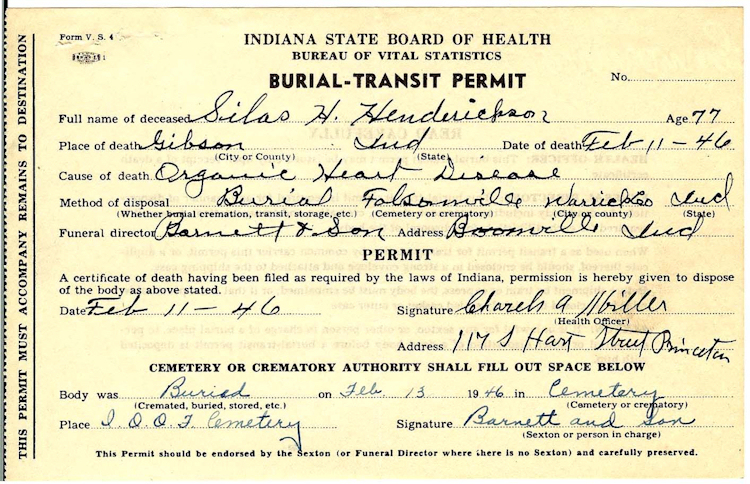 Form V. S. 4
INDIANA STATE BOARD OF HEALTH
BUREAU OF VITAL STATISTICS
BURIAL-TRANSIT PERMIT
No.
Full name of deceased Silas H. Henderickson Age 77
Place of death Gibson Ind Date of death Feb 11-46
(City or County) (State)
Cause of death Organic Heart Disease
Method of disposal Burial Folsomville Warrick Co Ind
(Whether burial cremation, transit, storage, etc.) (Cemetery or crematory) (City or county) (State)
Funeral director Barnett & Son Address Boonville Ind
PERMIT
A certificate of death having been filed as required by the laws of Indiana, permission is hereby given to dispose
of the body as above stated.
Date Feb 11-46 Signature Charels A Miller
(Health Officer)
Address 117 S Hart Street Princeton
CEMETERY OR CREMATORY AUTHORITY SHALL FILL OUT SPACE BELOW
Body was Buried on Feb. 13 1946 in Cemetery
(Cremated, buried, stored, etc.) (Cemetery or crematory)
Place I.O.O.F Cemetery Signature Barnett and Son
(Sexton or person in charge)
This Permit should be endorsed by the Sexton (or Funeral Director where there is no Sexton) and carefully preserved.
THIS PERMIT MUST ACCOMPANY REMAINS TO DESTINATION